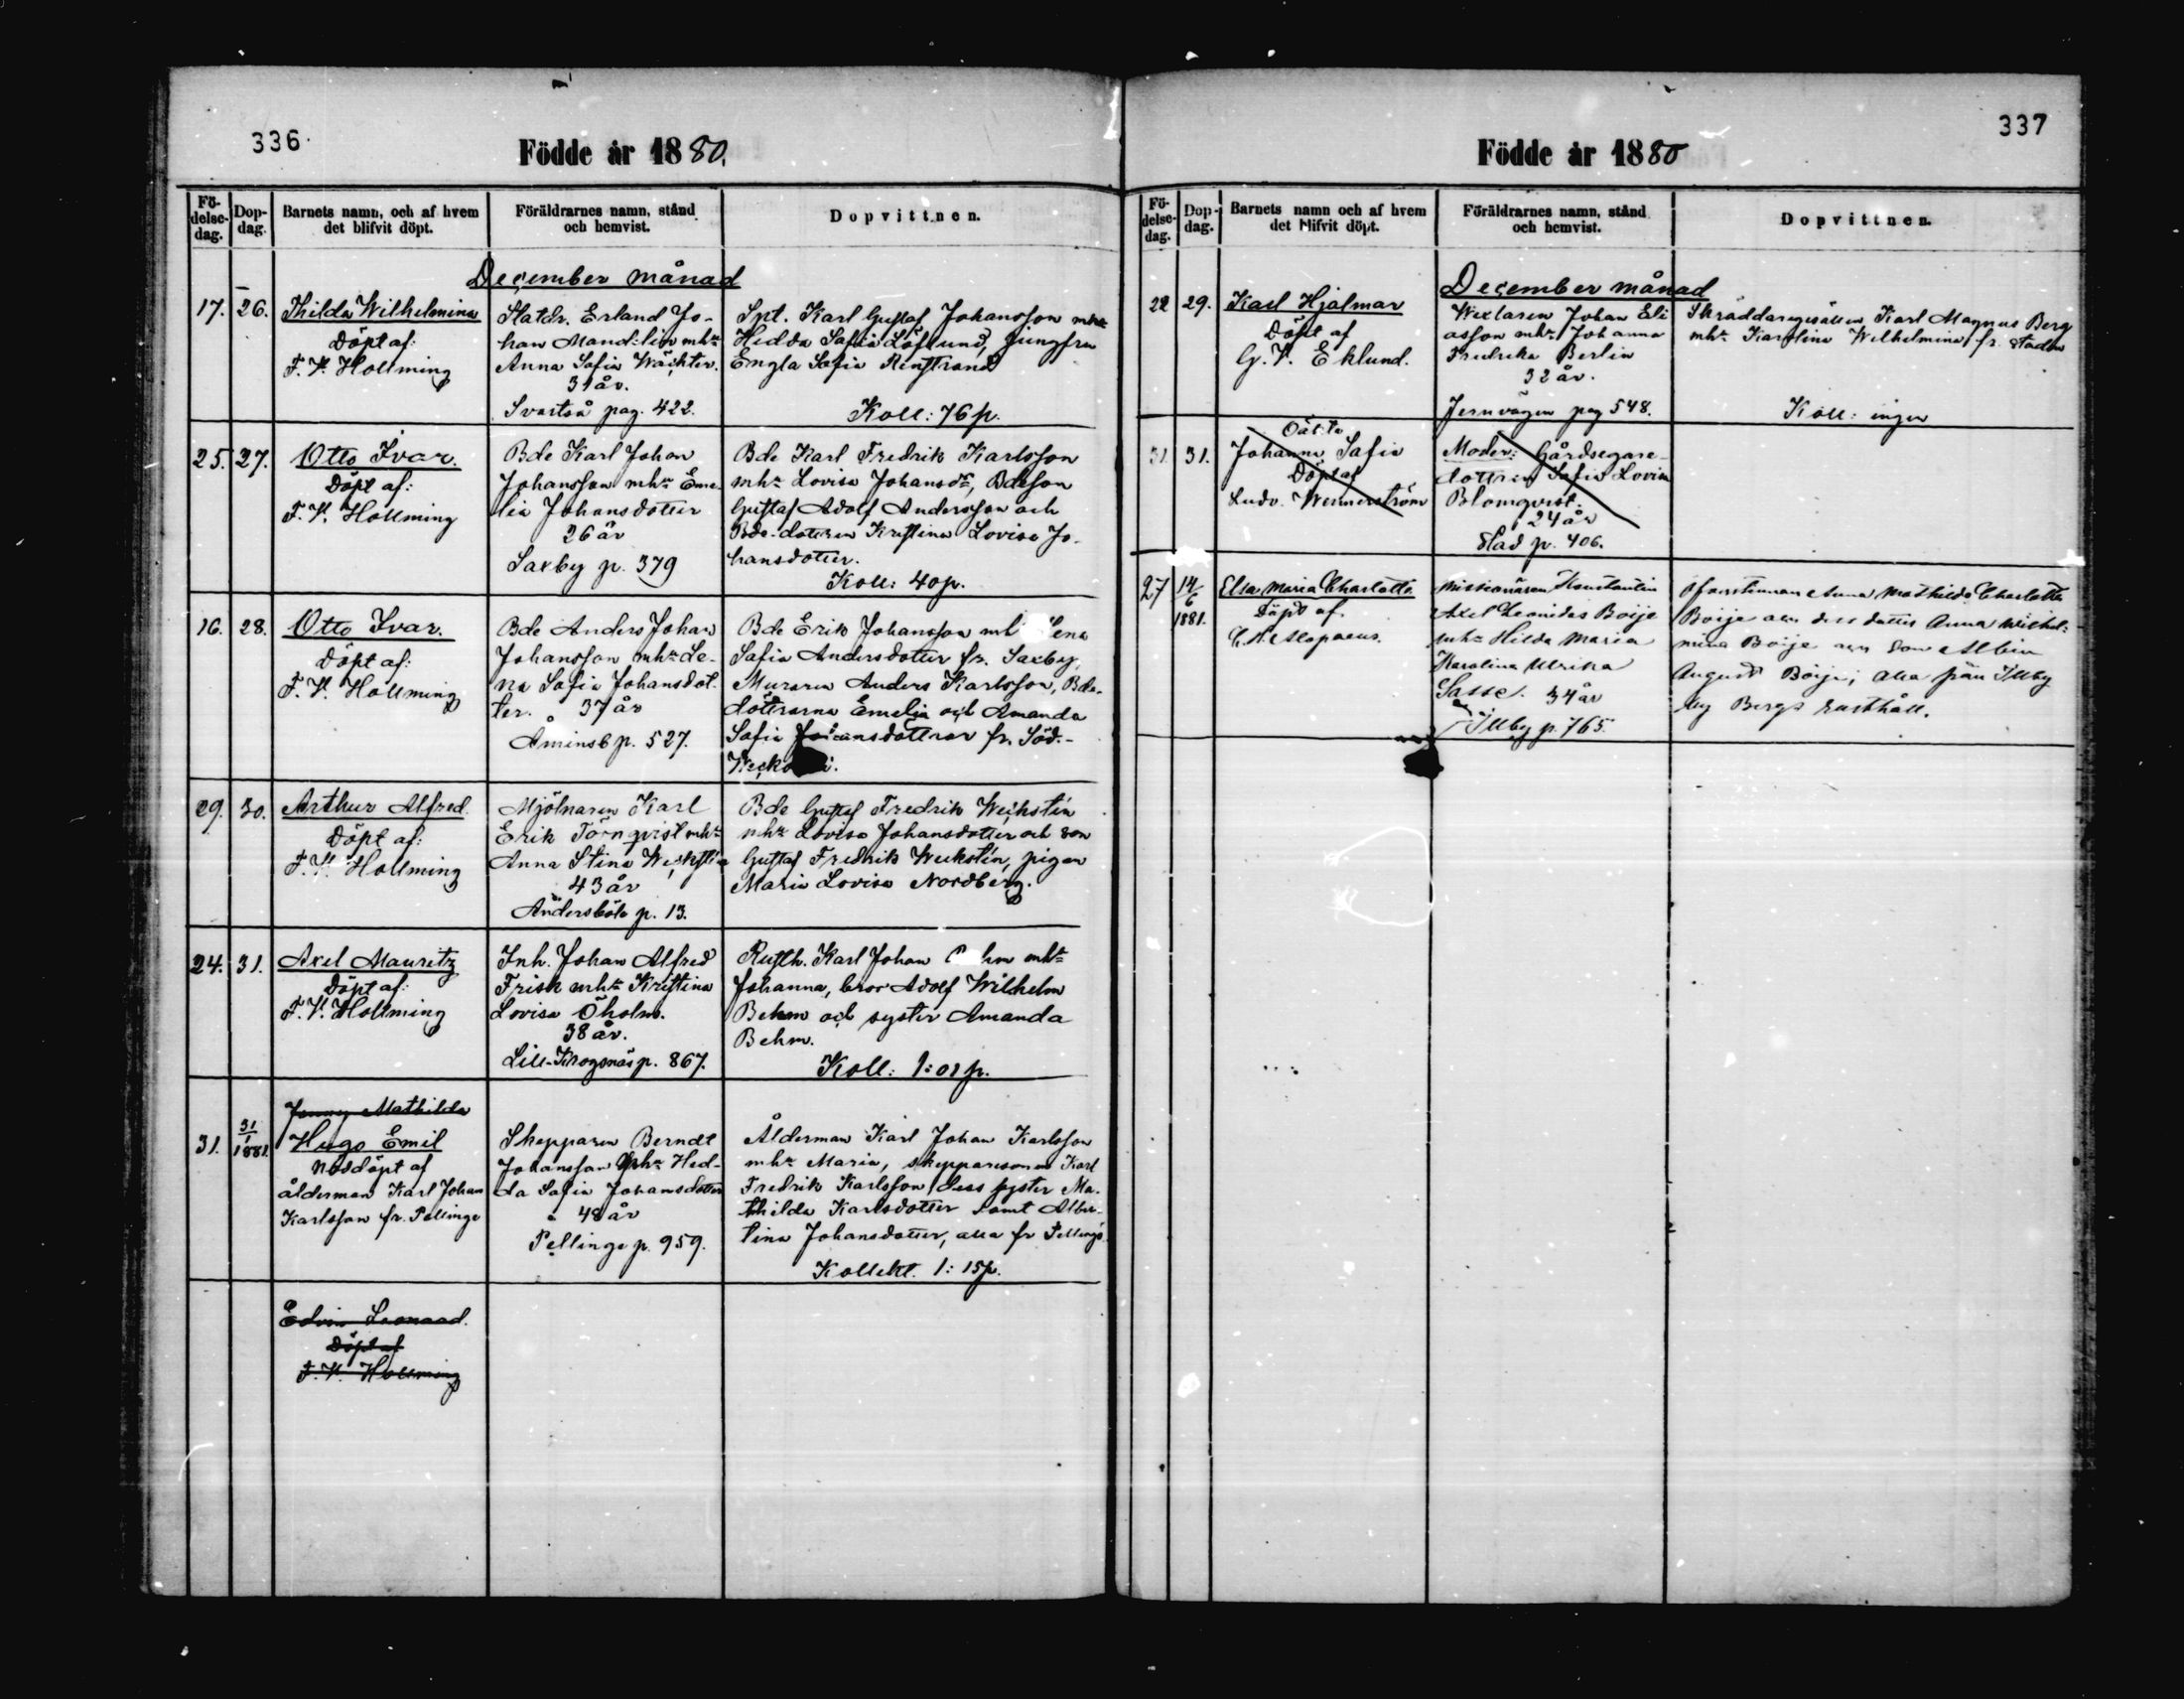 336.
Födde år 1880.
Födelsedag.
Dopdag.
Barnets namn, och af hvem det blifvit döpt.
Föräldrarnes namn, stånd och hemvist.
Dopvittnen.
December månad
17. 26.
Hilda Wilhelmina
Döpt af:
F. V. Hollming
Statdr. Erland Jo-
han Mandelin mhu
Anna Sofia Wäckter.
31 år.
Svartså pag. 422.
Spt. Karl Gustaf Johansson mhu
Hedda Sofia Löflund, jungfru
Engla Sofia Renstrand
Koll: 76 p.
25. 27.
Otto Ivar.
Döpt af:
F. V. Hollming
Bde Karl Johan
Johansson mhu Eme-
lia Johansdotter
26 år
Saxby p. 379
Bde Karl Fredrik Karlsson
mhu Lovisa Johansdr, Bdeson
Gustaf Adolf Andersson och
Bde-dottren Kristina Lovisa Jo-
hansdotter.
Koll: 40 p.
16. 28.
Otto Ivar.
Döpt af:
F. V. Hollming
Bde Anders Johan
Johansson mhu Le-
na Sofia Johansdot-
ter. 37 år
Åminsb p. 527.
Bde Erik Johansson Lena
Sofia Andersdotter fr. Saxby,
Muraren Anders Karlsson, Bde-
döttrarna Emelia och Amanda
Sofia Johansdottrar fr. Söd.-
29. 30.
Arthur Alfred.
Döpt af:
F. V. Hollming
Mjölnaren Karl
Erik Törnqvist mhu
Anna Stina Weckstin
43 år
Andersböle p. 13.
Bde Gustaf Fredrik Weckstin
mhu Lovisa Johansdotter och son
Gustaf Fredrik Weckstin, pigan
Maria Lovisa Nordberg.
24. 31.
Axel Mauritz
Döpt af:
F. V. Hollming
Inh. Johan Alfred
Frisk mhu Kristina
Lovisa Öholm.
38 år.
Lill-Krogsnäs p. 867.
Rusth. Karl Johan mhu
Johanna, bror Adolf Wilhelm
Behm och syster Amanda
Behm.
Koll: 1:01 p.
Jenny Mathilda
31. 31/1 1881.
Hugo Emil
Nöddöpt af
ålderman Karl Johan
Karlsson fr. Pellinge
Skepparen Berndt
Johansson mhu Hed-
da Sofia Johansdotter
48 år
Pellinge p. 959.
Ålderman Karl Johan Karlsson
mhu Maria, skepparesonen Karl
Fredrik Karlsson, dess syster Ma-
thilda Karlsdotter samt Alber-
tina Johansdotter, alla fr Pellinge
Kollekt. 1: 15 p.
Edvin Leonard.
Döpt af
F. V. Hollming
337
Födde år 1880
Födelsedag.
Dopdag.
Barnets namn och af hvem det blifvit döpt.
Föräldrarnes namn, stånd och hemvist.
Dopvittnen.
December månad
22 29.
Karl Hjalmar
Döpt af
G. V. Eklund.
Wexlaren Johan Eli
asson mhu Johanna
Fredrika Berlin
32 år.
Jernvägen pag 548.
Skräddaregesällen Karl Magnus Berg
mhu Karolina Wilhelmina, fr. staden
Koll: ingen
31. 31.
Oäkta
Johanna Sofia
Döpt af
Ludv. Wennerström
Moder: Gårdsegare-
dottren Sofia Lovisa
Blomqvist.
24 år
Stad p. 406.
27 14/6 1881.
Elsa Maria Charlotta
Döpt af.
Missionären Konstantin
Axel Leonidas Boije
mhu Hilda Maria
Karolina Ulrika
Sasse. 34 år
Illby p. 765.
Öfverstinnan Anna Mathilda Charlotta
Boije dess dotter Anna Wilhel-
mina Boije son Albin
August Boije; alla från Illby
by Bergs rusthåll.